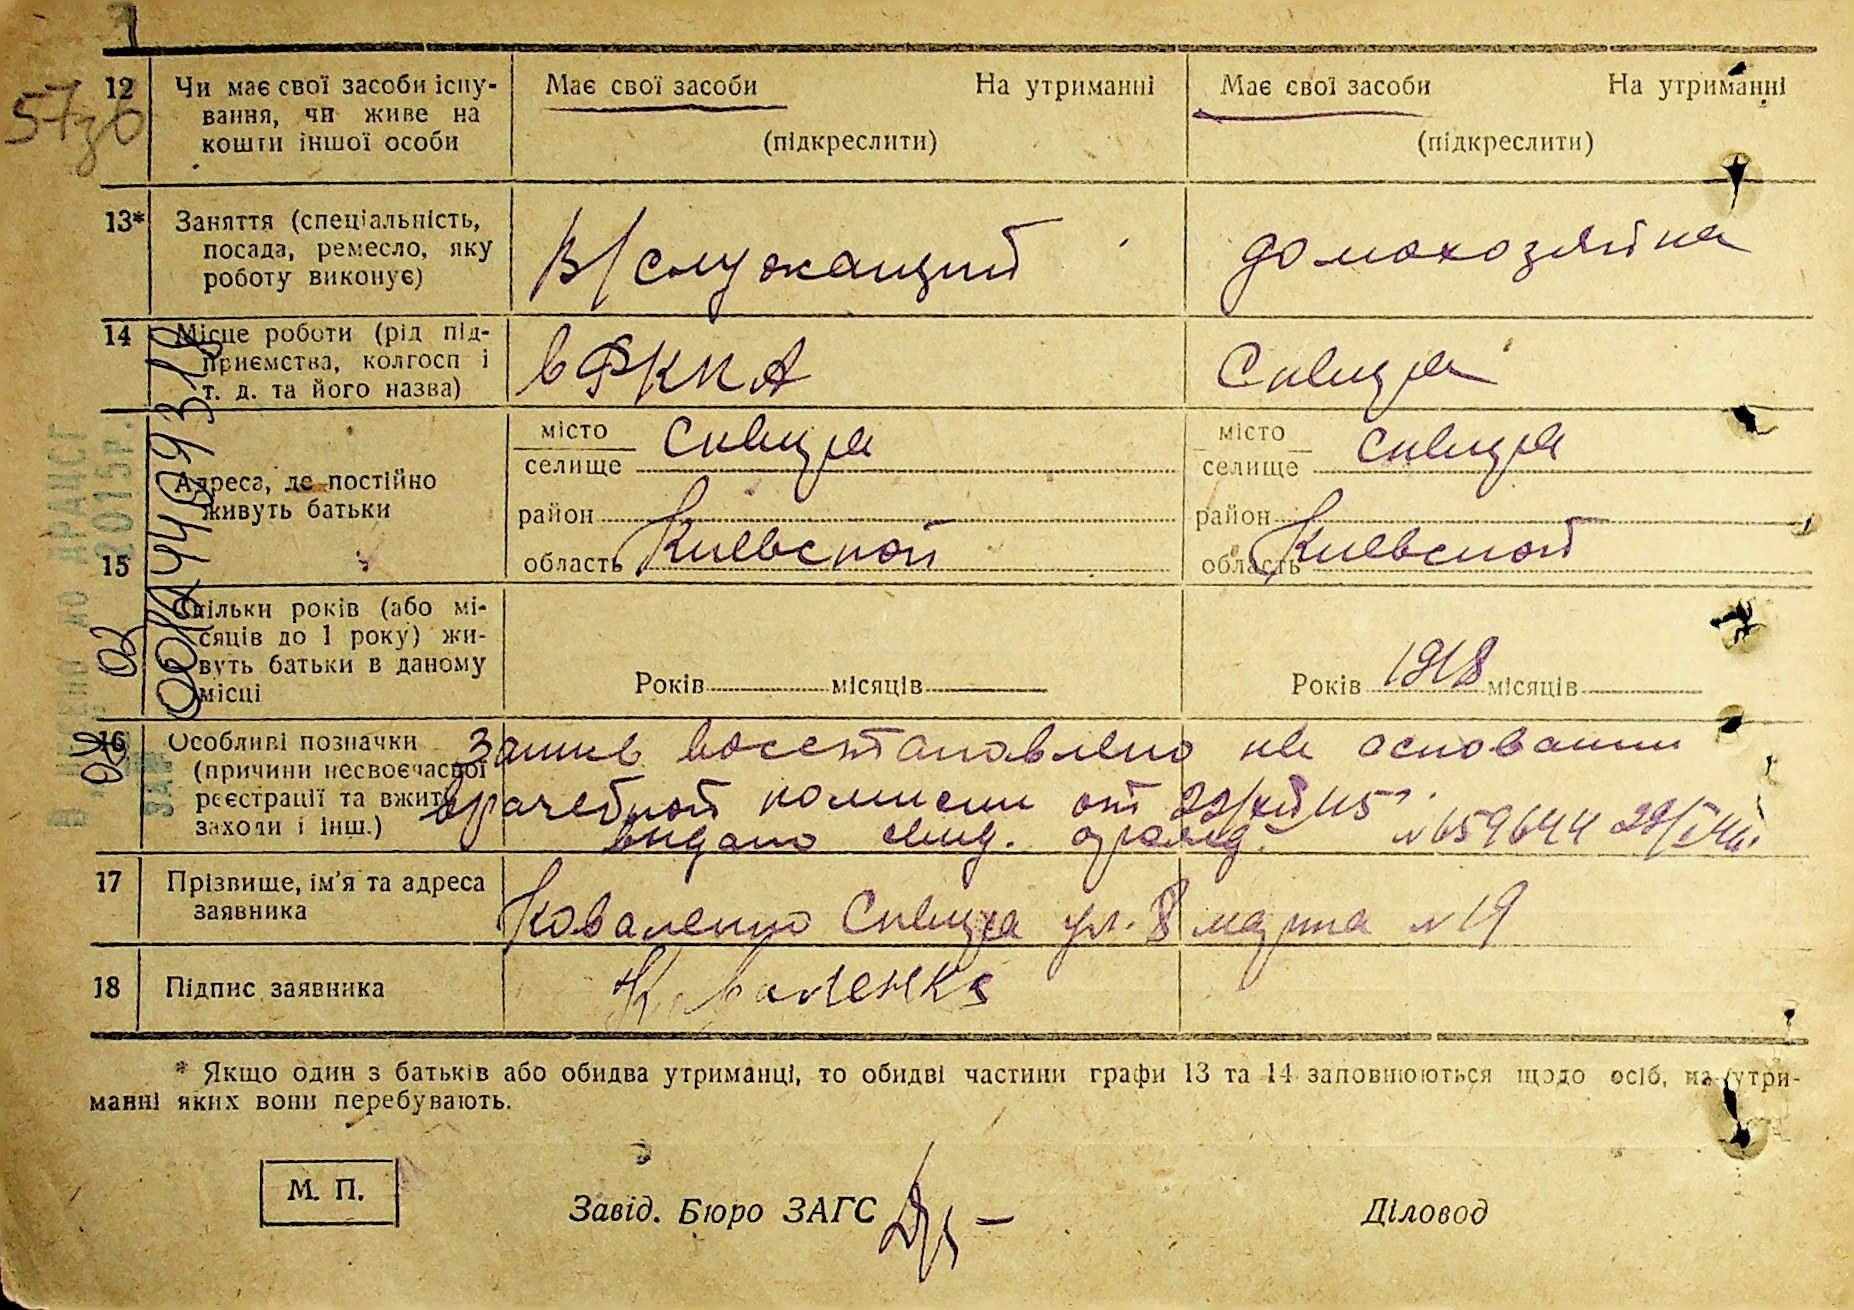 12 Чи має свої засоби існу- Має свої засоби На утриманні Має свої засоби На утриманні
вання, чи живе на
кошти іншої особи (підкреслити) (підкреслити)
13* Заняття (спеціальність,
посада, ремесло, яку В/служащий домохозяйка
роботу виконує)
14 Місце роботи (рід під-
приємства, колгосп і в РККА Сквира
т. д. та його назва)
місто Сквира місто Сквира
селище селище
Адреса, де постійно
живуть батьки район район
15 область Киевской область Киевской
Скільки років (або мі-
сяців до 1 року) жи-
вуть батьки в даному
місці Років місяців Років 1918 місяців
16 Особливі позначки Запись восстановлено на основании
(причини несвоєчасної
реєстрації та вжиті врачебной комисии от 22/XII 45
заходи і інш.) выдано свид. о рожд. №659644
17 Прізвище, ім'я та адреса
заявника Коваленко Сквира ул. 8 марта №19
18 Підпис заявника Коваленко
* Якщо один з батьків або обидва утриманці, то обидві частини графи 13 та 14 заповнюються щодо осіб, на утри-
манні яких вони перебувають.
М. П. Завід. Бюро ЗАГС Діловод